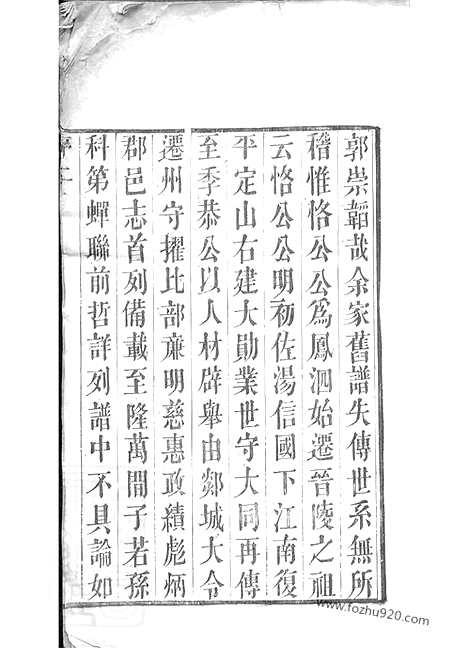 郭崇韜哉余家舊譜失傳世系無所
稽惟恪公公爲鳳泗始遷晉陵之祖
云恪公公明初佐湯信國下江南復
平定山右建大勛業世守大同再傳
至季恭公以人材辟舉由郯城大令
遷州守擢比部亷明慈惠政績彪炳
郡邑志首列備載至隆萬間子若孫
科第蟬聯前哲詳列譜中不具論如
序
二
www.fozhu920.com